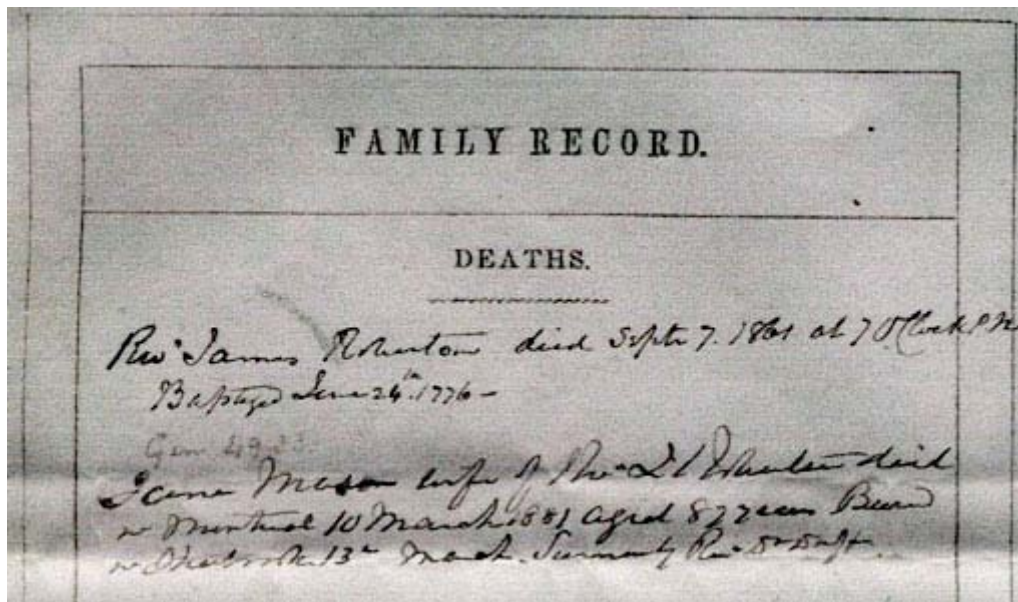 FAMILY RECORD.
DEATHS.
Revd James Robertson died Septr 7. 1861 at 7 O'Clock P.M
Baptized June 24th 1776 -
Gen 49.33.
Jane Mason wife of Revd Robertson died
in Montreal 10 March 1881 aged 87 years Buried
in Sherbrooke 13th March. Revd Dr Duff